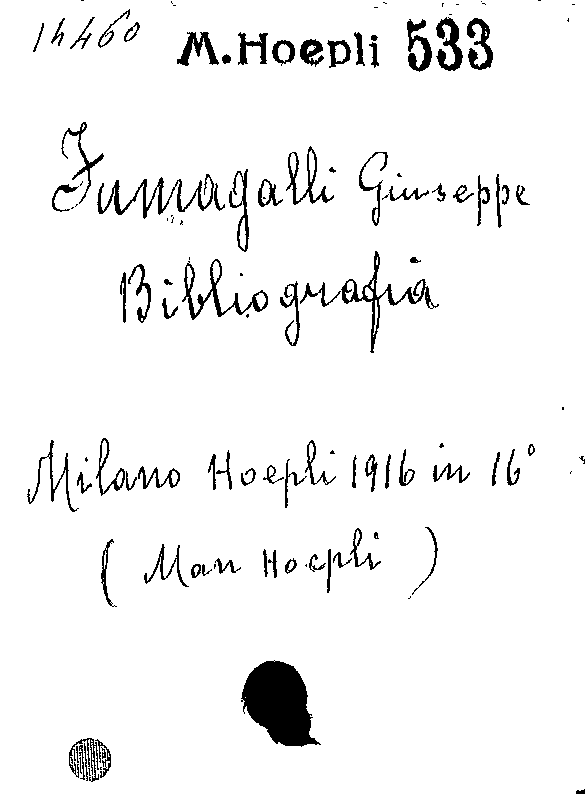 14460 M. Hoepli 533
Fumagalli Giuseppe
Bibliografia
Milano Hoepli 1916 in 16°
( Man Hoepli )